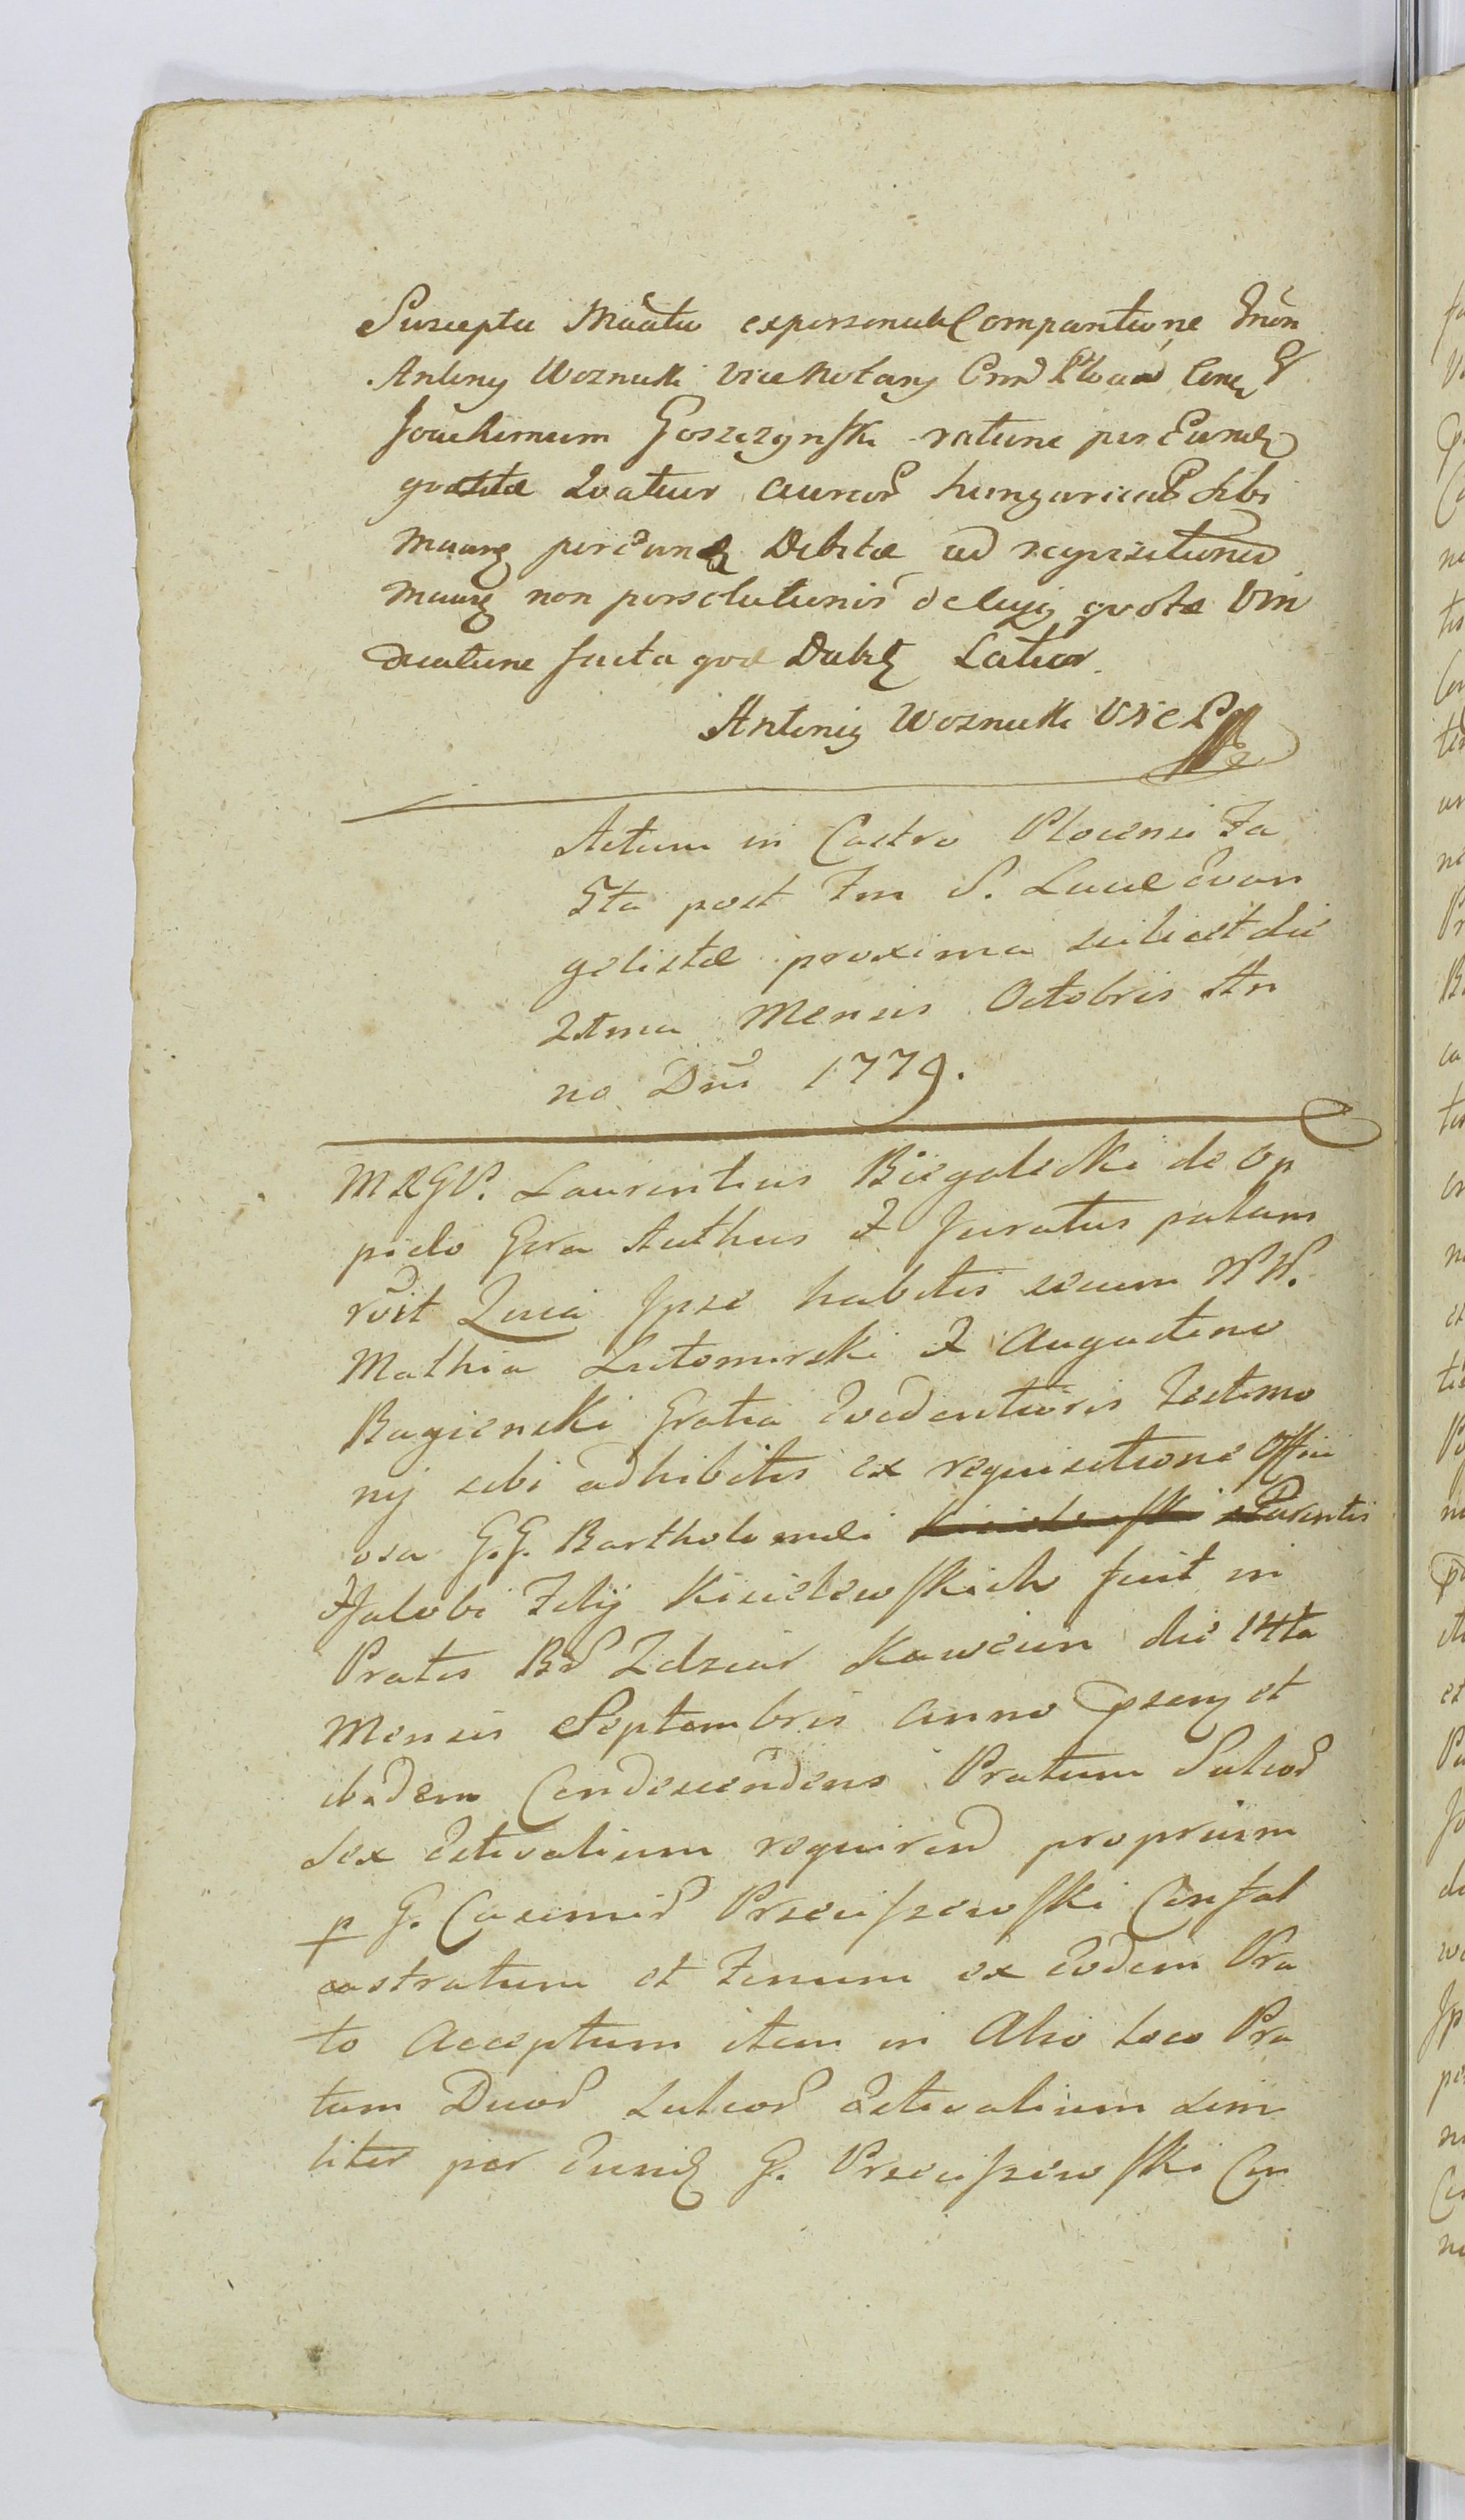 Suscepta Mãatio ex personali Comparitione Gnõn
Antony Woznicki Vice Notarij Cnra
Joachimum Goszczynski ratione per Eundē
quotta Quatuor aureorũ hungaricalĩ sibi
per eund Debitæ ad requisitionem
non persolutionis dehuj quotæ Vin
dicatione facta quæ Dabitr Latior.
Antoniy Woznicki Vice
Actum in Castro Plocensi Fa
5ta post Fm S. Lucæ Evan
gelistæ proxima scilicet die
21ma Mensis Octobris An
no Dni 1779.
M R G P. Laurentius Biegalski de Op
pido Gora Authus & Juratus palam
rõit Quia Ipse habitis secum NN.
Mathia Lutomirski & Augustino
Bagienski Gratia Evidentioris Testimo
nij sibi adhibitis ex requisitione Offici
osa G.G. Bartholomei Parentis
& Jakobi Filij Kisielewskich fuit in
Pratis Br Zdziar Kawcin die 14ta
Mensis Septembris anno psenti et
ibidem Condescendens Pratum Sulcorũ
Sex Estivalium requirend proprium
p G. Casimirũ Przeciszewski Confal
castratum et Fenum ex Eodem Pra
to Acceptum item in Alio loco Pra
tum Duorũ Sulcorũ Estivalium Simi
liter per Eundē G. Przeciszewski Con